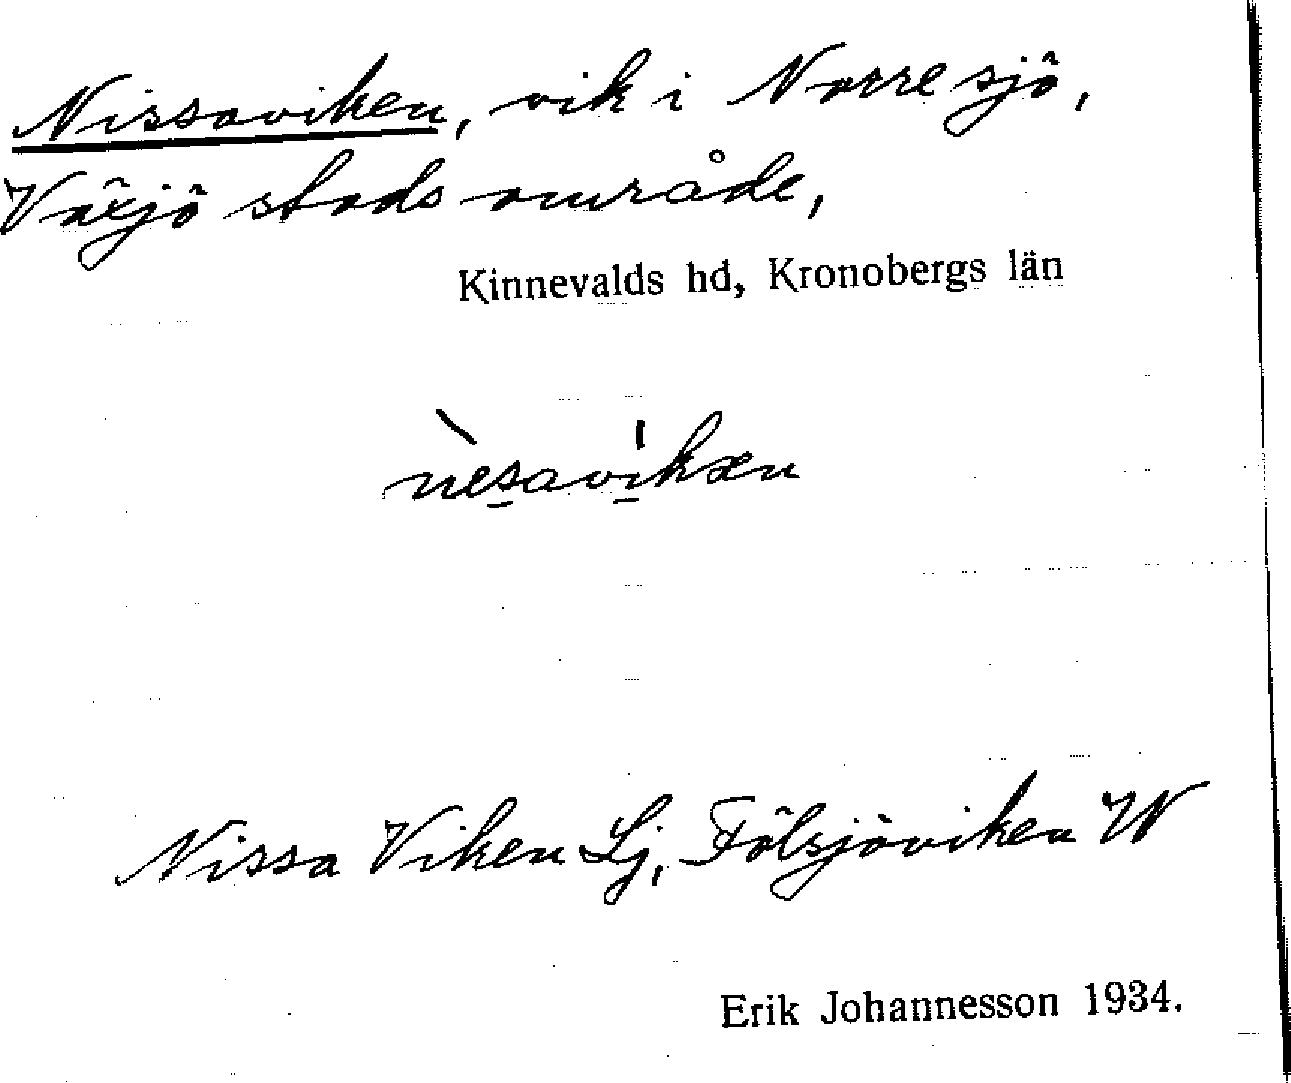 Nissaviken, vik i Norresjö,
Växjö stads område,
Kinnevalds hd, Kronobergs län
nèsavíkæn
Nissa Viken Lj, Fölsjöviken W
Erik Johannesson 1934.